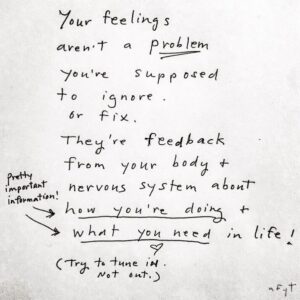 Your feelings
aren't a problem
you're supposed
to ignore.
or fix.
They're feedback
from your body +
nervous system about
how you're doing +
what you need in life!
Pretty
important
information!
(Try to tune in.
Not out.)